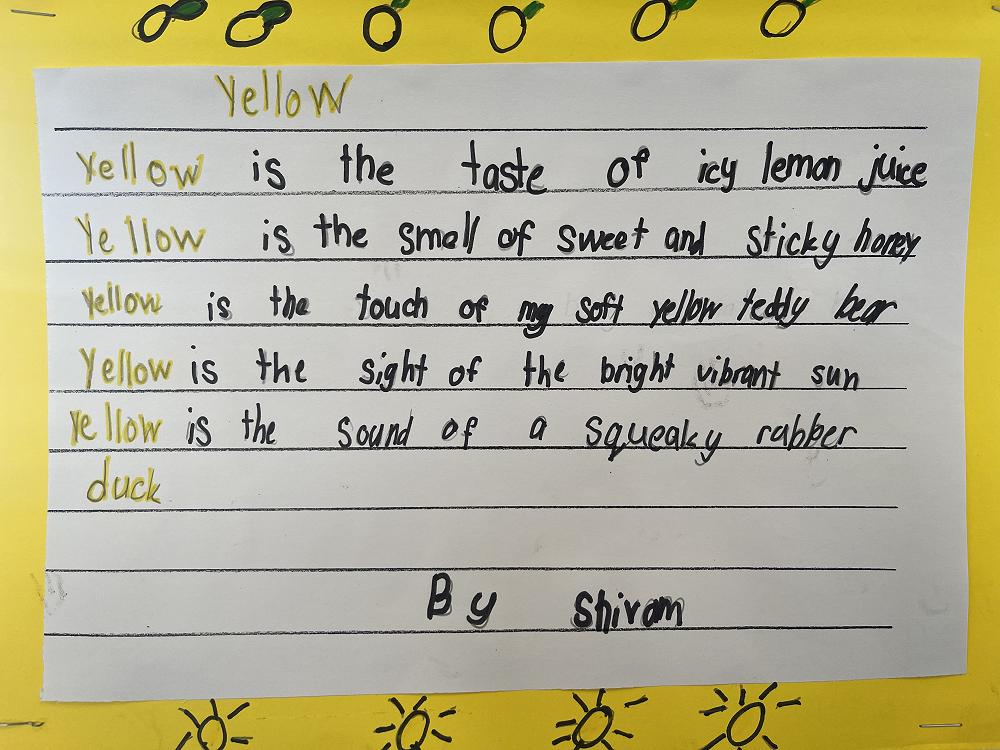 Yellow
Yellow is the taste of icy lemon juice
Yellow is the smell of sweet and sticky honey
Yellow is the touch of my soft yellow teddy bear
Yellow is the sight of the bright vibrant sun
Yellow is the sound of a squeaky rabber
duck
By Shivam